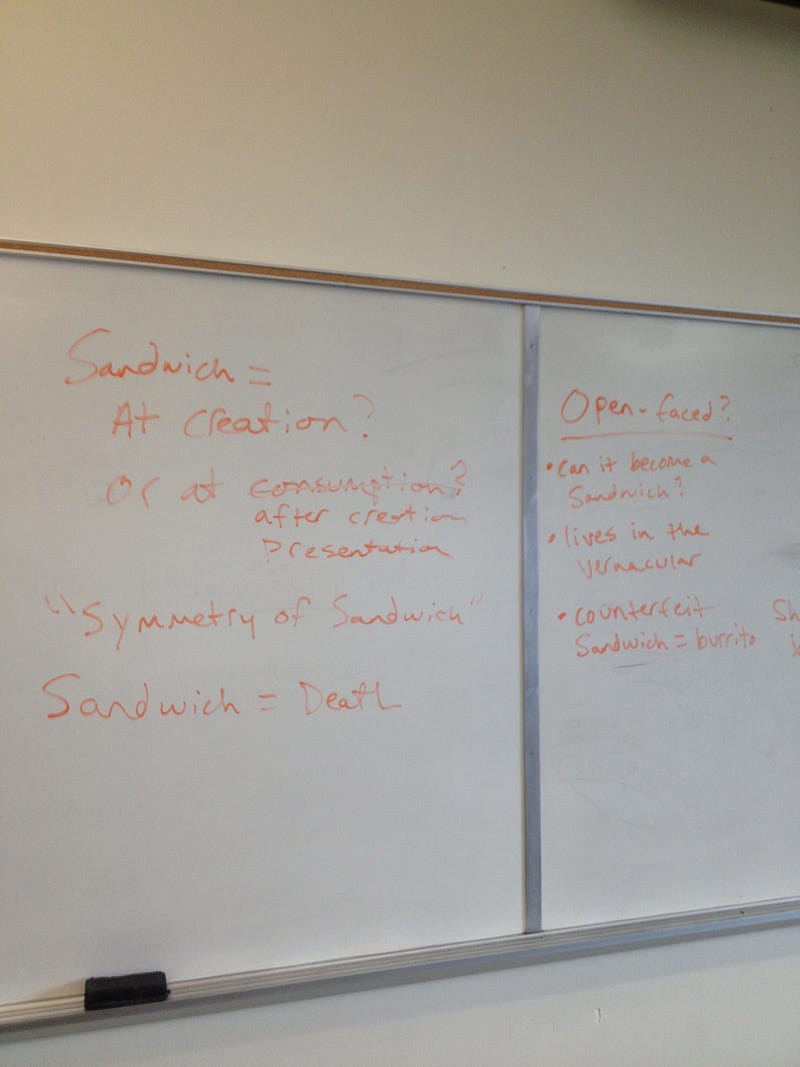 Sandwich =
At creation?
Or at consumption?
after creation
Presentation
"Symmetry of Sandwich"
Sandwich = Death
Open-faced?
• can it become a
Sandwich?
• lives in the
vernacular
• counterfeit
Sandwich = burrito